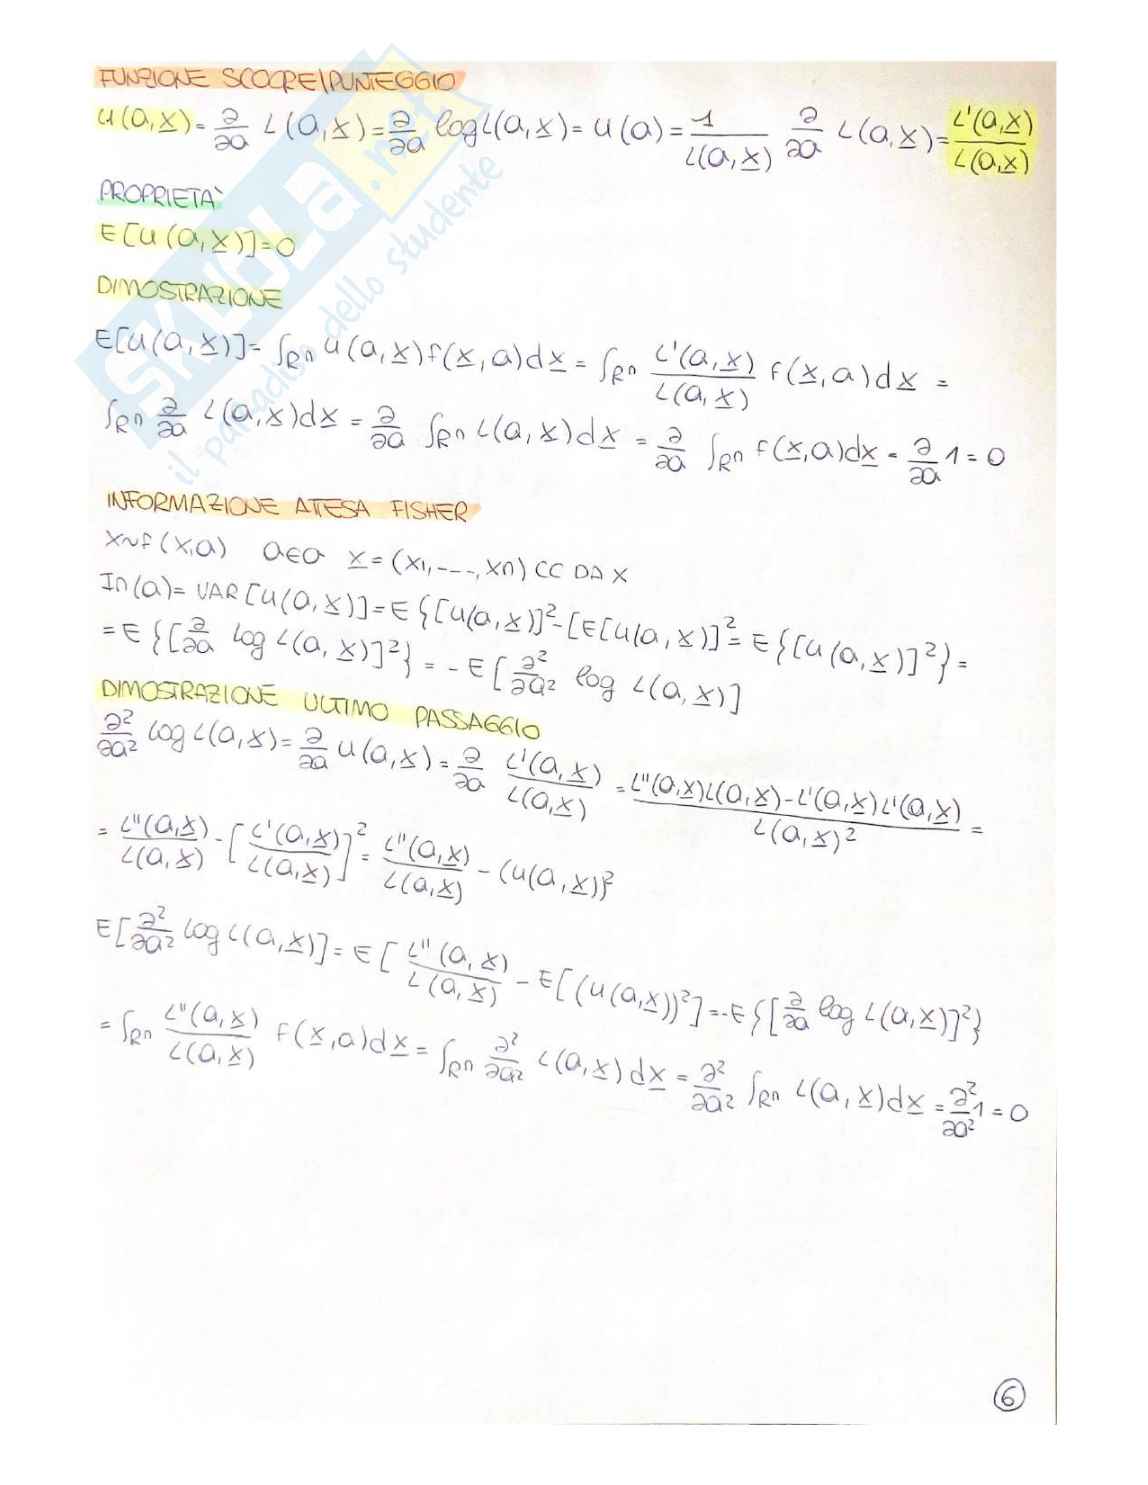 FUNZIONE SCOORE\PUNTEGGIO
u(a,x) = ∂/∂a L(a,x) = ∂/∂a log L(a,x) = u(a) = 1/L(a,x) ∂/∂a L(a,x) = L'(a,x)/L(a,x)
PROPRIETA'
E[u(a,x)] = 0
DIMOSTRAZIONE
E[u(a,x)] = ∫Rⁿ u(a,x) f(x,a)dx = ∫Rⁿ L'(a,x)/L(a,x) f(x,a)dx =
∫Rⁿ ∂/∂a L(a,x)dx = ∂/∂a ∫Rⁿ L(a,x)dx = ∂/∂a ∫Rⁿ f(x,a)dx = ∂/∂a 1 = 0
INFORMAZIONE ATTESA FISHER
X~f(x,a) a∈a x = (x1,----,xn) CC DA X
In(a) = VAR[u(a,x)] = E{[u(a,x)]² - [E[u(a,x)]² = E{[u(a,x)]²} =
= E{[∂/∂a log L(a,x)]²} = - E[∂²/∂a² log L(a,x)]
DIMOSTRAZIONE ULTIMO PASSAGGIO
∂²/∂a² log L(a,x) = ∂/∂a u(a,x) = ∂/∂a L'(a,x)/L(a,x) = L''(a,x)L(a,x) - L'(a,x)L'(a,x)/L(a,x)² =
= L''(a,x)/L(a,x) - [L'(a,x)/L(a,x)]² = L''(a,x)/L(a,x) - (u(a,x))²
E[∂²/∂a² log L(a,x)] = E[L''(a,x)/L(a,x) - E[(u(a,x))²] = -E{[∂/∂a log L(a,x)]²}
= ∫Rⁿ L''(a,x)/L(a,x) f(x,a)dx = ∫Rⁿ ∂²/∂a² L(a,x)dx = ∂²/∂a² ∫Rⁿ L(a,x)dx = ∂²/∂a² 1 = 0
6
SKUOLA.net
il paradiso dello studente